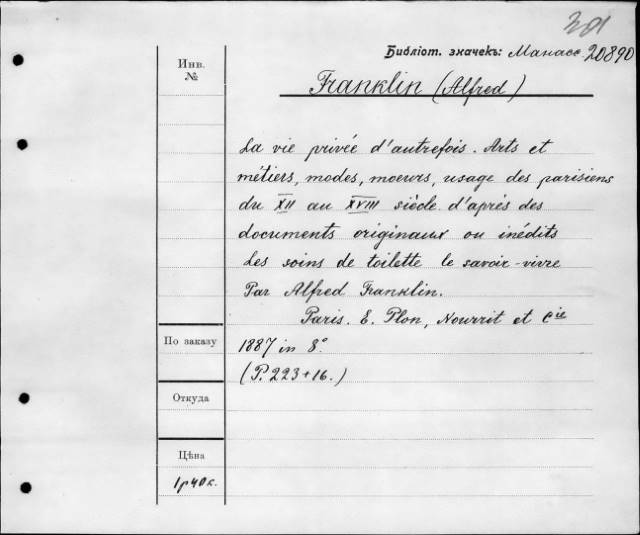 301
Библіот. значекъ: Манасс. 20890
Инв.
№
Franklin (Alfred)
La vie privée d'autrefois. Arts et
métiers, modes, moeurs, usage des parisiens
du XII au XVIII siècle d'après des
documents originaux ou inédits
Les soins de toilette le savoir-vivre
Par Alfred Franklin.
Paris. E. Plon, Nourrit et Cie
По заказу
1887 in 8°.
(P. 223+16.)
Откуда
Цѣна
1р40к.